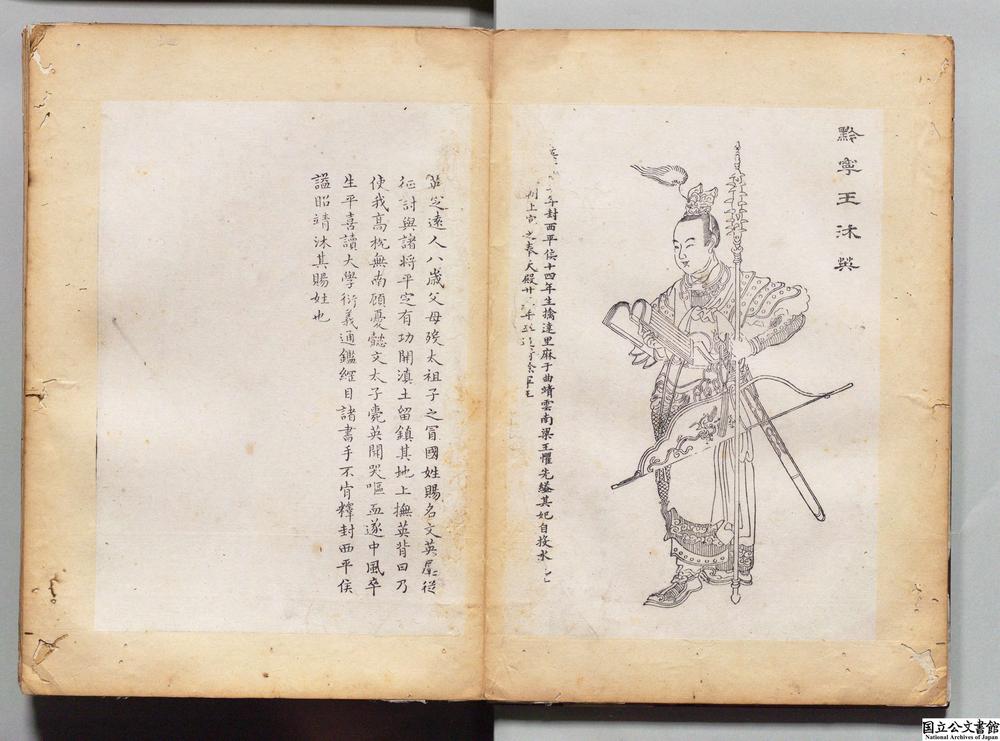 黔寧王沐英
年封西平侯十四年生擒達里麻于曲靖雲南梁王懼先縊其妃自投水
英定遠人八歲父母歿太祖子之冐國姓賜名文英屢從
征討與諸將平定有功開滇土留鎮其地上撫英背曰乃
使我高枕無南顧憂懿文太子薨英聞哭嘔血遂中風卒
生平喜讀大學衍義通鑑綱目諸書手不肯釋封西平侯
謚昭靖沐其賜姓也
国立公文書館
National Archives of Japan